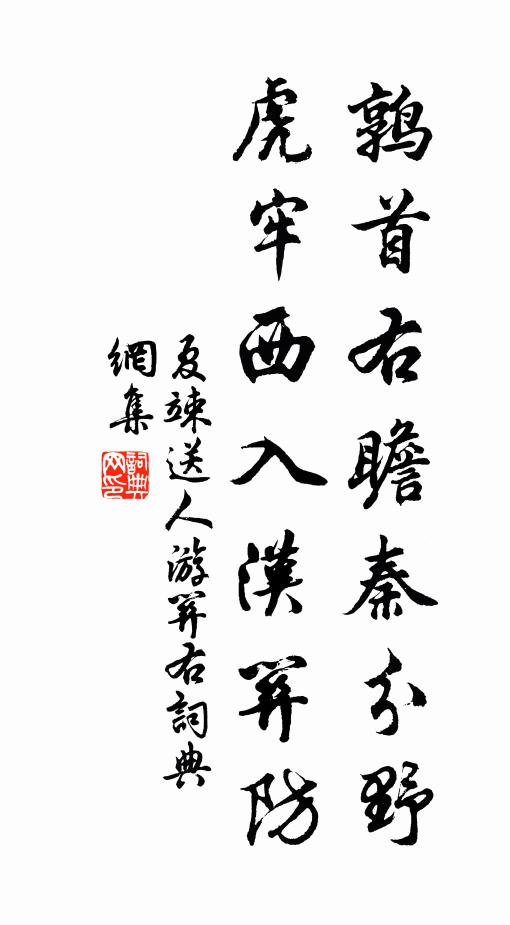 鶉首右瞻秦分野
虎牢西入漢關防
夏竦送人游關右詞典
網集
詞典網印